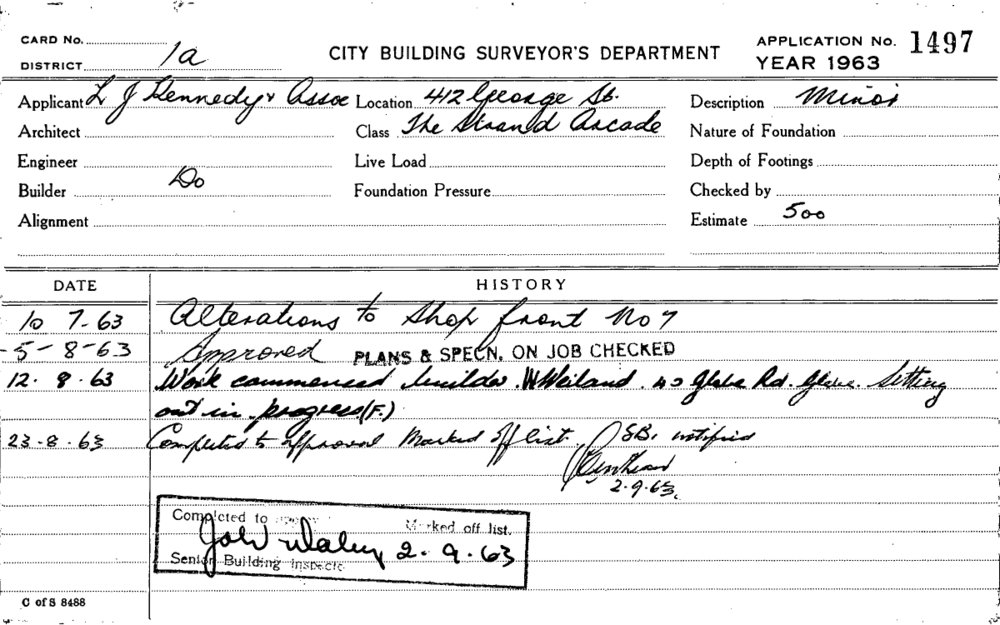 CARD No.
DISTRICT 1a
CITY BUILDING SURVEYOR'S DEPARTMENT
APPLICATION No. 1497
YEAR 1963
Applicant L J Kennedy & Assoc Location 412 George St. Description Minor
Architect Class The Strand Arcade Nature of Foundation
Engineer Live Load Depth of Footings
Builder Do Foundation Pressure Checked by
Alignment Estimate 500
DATE HISTORY
10 7-63 Alterations to Shop front No 7
-5-8-63 Approved PLANS & SPECN. ON JOB CHECKED
12. 8. 63 Work commenced builder W Weiland. 40 Glebe Rd. Glebe. Setting
out in progress (F.)
23-8.63 Completed to approval Marked off list. SB. notified
2.9.63.
Completed to Marked off list.
2. 9. 63
Senior Building Inspector
C of S 8488